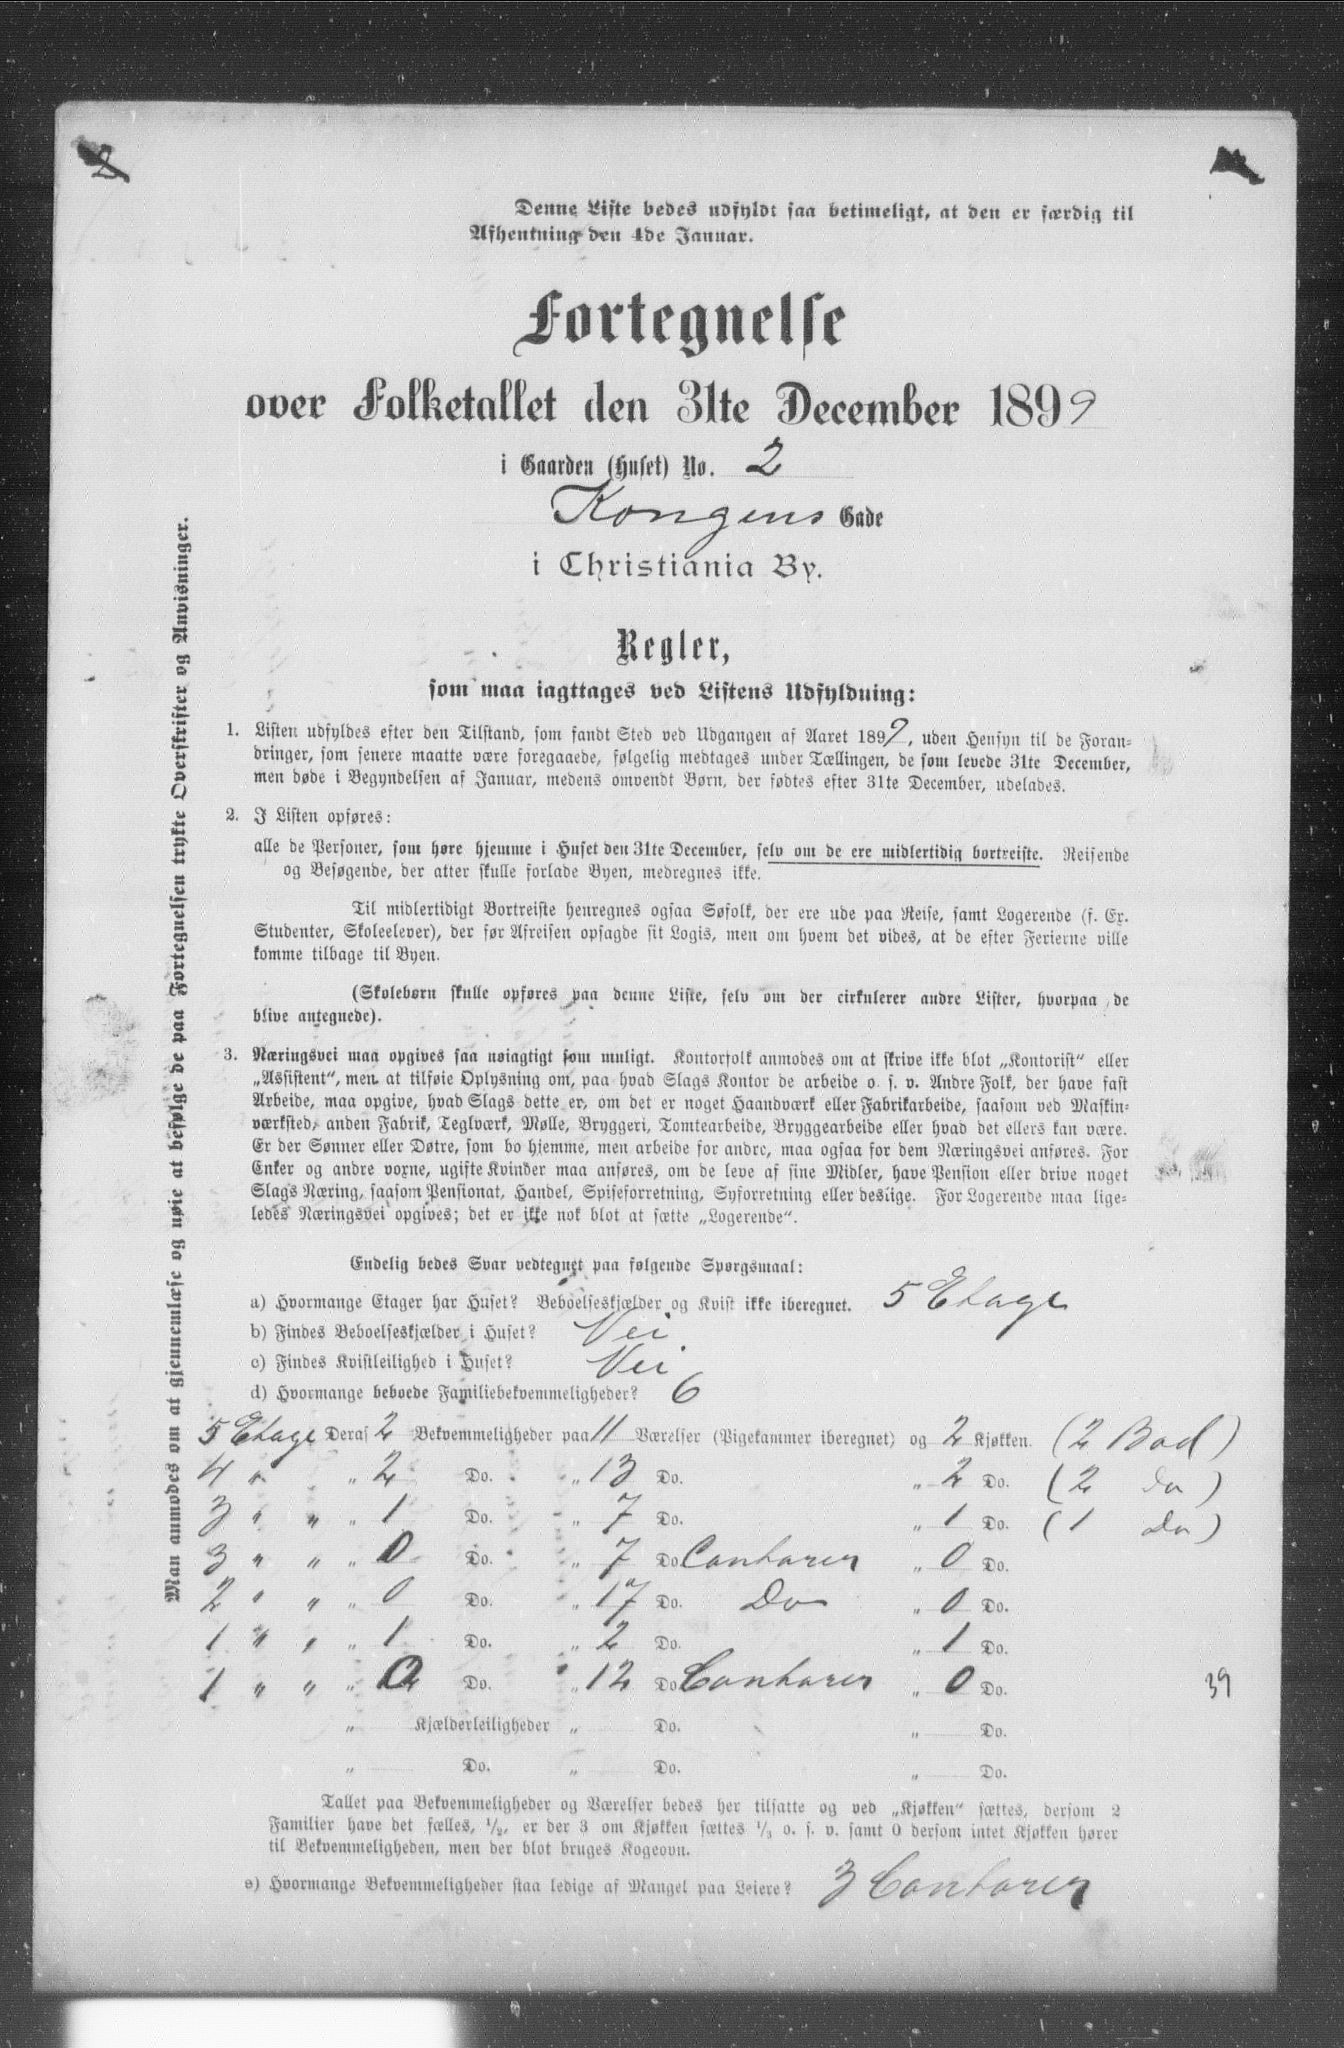 2
Denne Liste bedes udfyldt saa betimeligt, at den er færdig til
Afhentning den 4de Januar.
Fortegnelse
over Folketallet den 31te December 1899
i Gaarden (Huset) No. 2
Kongens Gade
i Christiania By.
Regler,
som maa iagttages ved Listens Udfyldning:
1. Listen udfyldes efter den Tilstand, som fandt Sted ved Udgangen af Aaret 1899, uden Hensyn til de Foran-
dringer, som senere maatte være foregaaede, følgelig medtages under Tællingen, de som levede 31te December,
men døde i Begyndelsen af Januar, medens omvendt Børn, der fødtes efter 31te December, udelades.
2. I Listen opføres:
alle de Personer, som høre hjemme i Huset den 31te December, selv om de ere midlertidig bortreiste. Reisende
og Besøgende, der atter skulle forlade Byen, medregnes ikke.
Til midlertidigt Bortreiste henregnes ogsaa Søfolk, der ere ude paa Reise, samt Logerende (f. Ex.
Studenter, Skoleelever), der før Afreisen opsagde sit Logis, men om hvem det vides, at de efter Ferierne ville
komme tilbage til Byen.
(Skolebørn skulle opføres paa denne Liste, selv om der cirkulerer andre Lister, hvorpaa de
blive antegnede).
3. Næringsvei maa opgives saa nøiagtigt som muligt. Kontorfolk anmodes om at skrive ikke blot „Kontorist“ eller
„Assistent“, men at tilføie Oplysning om, paa hvad Slags Kontor de arbeide o. s. v. Andre Folk, der have fast
Arbeide, maa opgive, hvad Slags dette er, om det er noget Haandværk eller Fabrikarbeide, saasom ved Maskin-
værksted, anden Fabrik, Teglværk, Mølle, Bryggeri, Tomtearbeide, Bryggearbeide eller hvad det ellers kan være.
Er der Sønner eller Døtre, som bo hjemme, men arbeide for andre, maa ogsaa for dem Næringsvei anføres. For
Enker og andre voxne, ugifte Kvinder maa anføres, om de leve af sine Midler, have Pension eller drive noget
Slags Næring, saasom Pensionat, Handel, Spiseforretning, Syforretning eller deslige. For Logerende maa lige-
ledes Næringsvei opgives; det er ikke nok blot at sætte „Logerende“.
Endelig bedes Svar vedtegnet paa følgende Spørgsmaal:
a) Hvormange Etager har Huset? Beboelseskjælder og Kvist ikke iberegnet. 5 Etage
b) Findes Beboelseskjælder i Huset? Nei
c) Findes Kvistleilighed i Huset? Nei
d) Hvormange beboede Familiebekvemmeligheder? 6
5 Etage Deraf 2 Bekvemmeligheder paa 11 Værelser (Pigekammer iberegnet) og 2 Kjøkken. (2 Bad)
4 " „ 2 Do. „ 13 Do. „ 2 Do. (2 do)
3 " " „ 1 Do. „ 7 Do. „ 1 Do. (1 Do)
3 " " „ 0 Do. „ 7 Do Contorer „ 0 Do.
2 " " „ 0 Do. „ 17 Do. Do „ 0 Do.
1 " " „ 1 Do. „ 2 Do. „ 1 Do.
1 " " „ 0 Do. „ 12 Do Contorer „ 0 Do.
39
„ Kjælderleiligheder „ Do. „ Do.
„ Do. „ Do. „ Do.
Tallet paa Bekvemmeligheder og Værelser bedes her tilsatte og ved „Kjøkken“ sættes, dersom 2
Familier have det fælles, 1/2, er der 3 om Kjøkken sættes 1/3 o. s. v. samt 0 dersom intet Kjøkken hører
til Bekvemmeligheden, men der blot bruges Kogeovn.
e) Hvormange Bekvemmeligheder staa ledige af Mangel paa Leiere? 3 Contorer
Man anmodes om at gjennemlæse og nøie at befølge de paa Fortegnelsen trykte Overskrifter og Anvisninger.